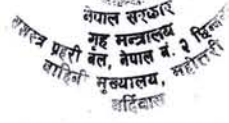 नेपाल सरकार
गृह मन्त्रालय
सशस्त्र प्रहरी बल, नेपाल नं. २
बाहिनी मुख्यालय, महोत्तरी
बर्दिवास